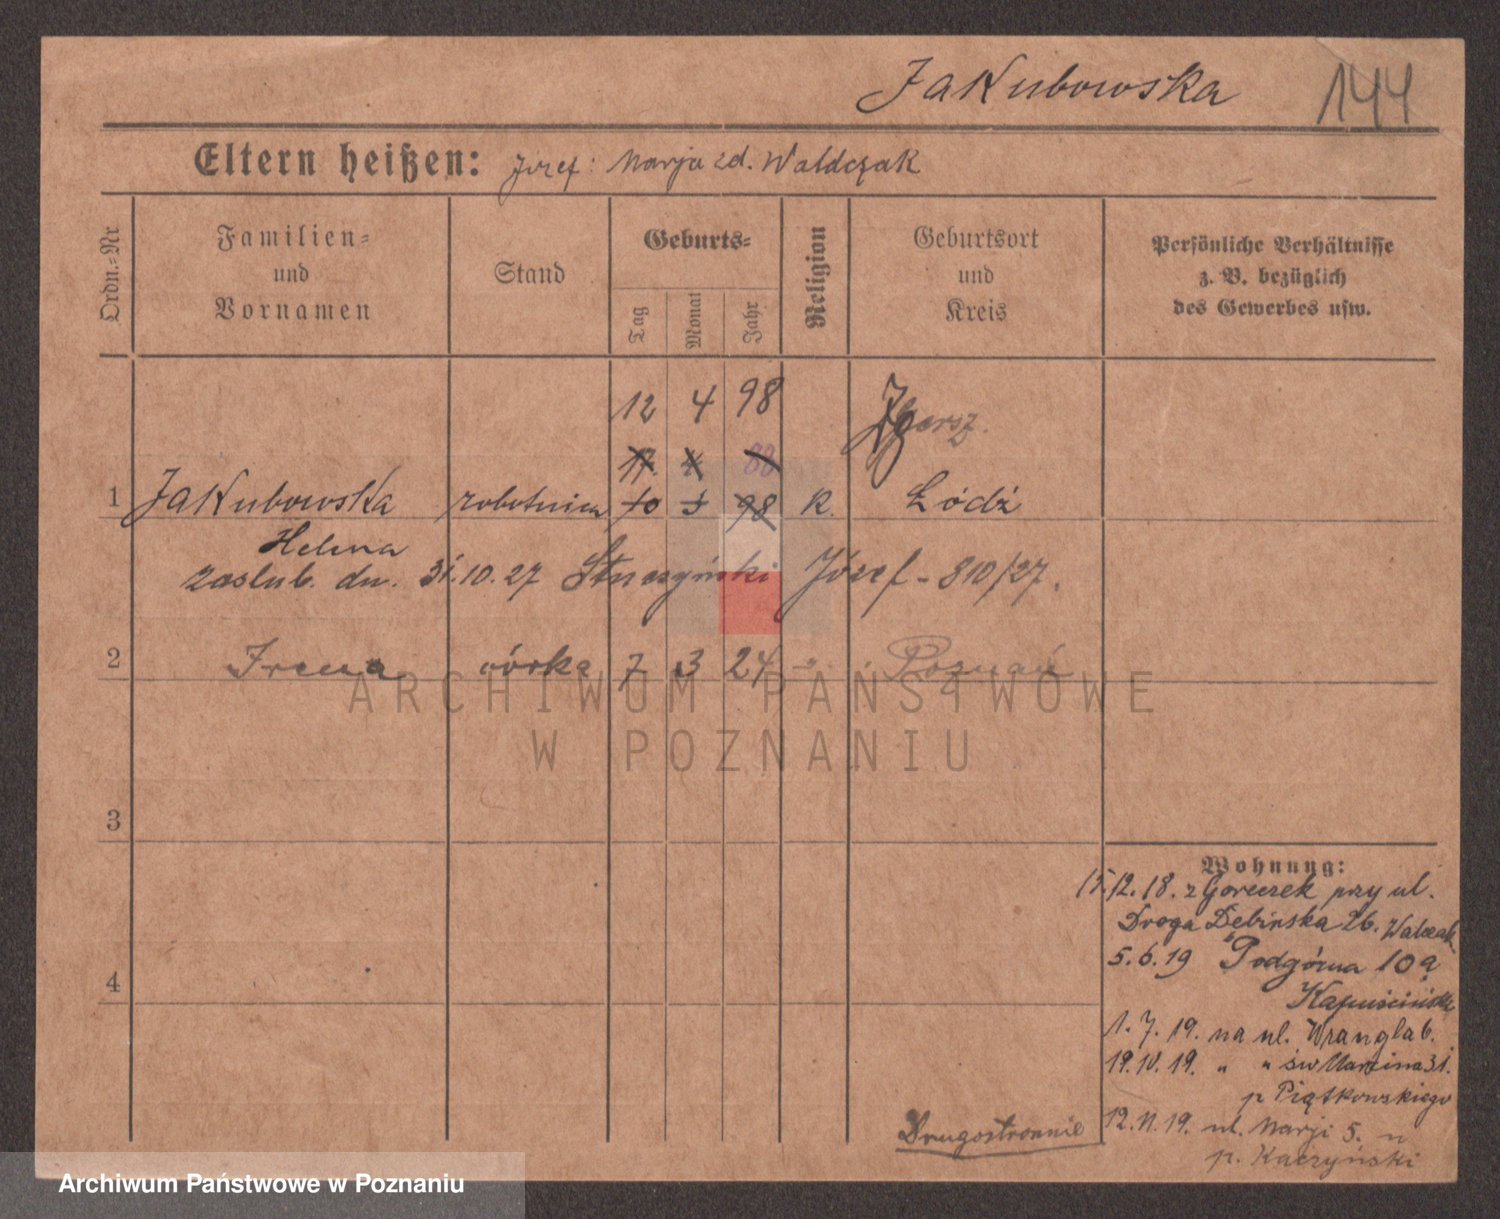 Jakubowska 144
Eltern heißen: Józef: Marja zd. Waldczak
Ordn.-Nr
Familien-
und
Vornamen
Stand
Geburts-
Tag
Monat
Jahr
Religion
Geburtsort
und
Kreis
Persönliche Verhältnisse
z. B. bezüglich
des Gewerbes usw.
12 4 98 Zgierz.
88
1 Jakubowska robotnica 10 98 R. Łódź
Helena
zaslub. dn. 31.10.27 Stuczyński Józef - 810/27.
2 Irena córka 7 3 24 Poznań
3
4
Wohnung:
15.12.18. z Goreczek przy ul.
Droga Debinska 26. Walczak
5.6.19 Podgórna 10a
Kapuścińska
1.7.19. na ul. Wrangla 6.
19.10.19. " " św Marcina 31.
p Piątkowskiego
12.11.19. ul. Marji 5.
p. Kaczyński
Drugostronnie
ARCHIWUM PAŃSTWOWE
W POZNANIU
Archiwum Państwowe w Poznaniu